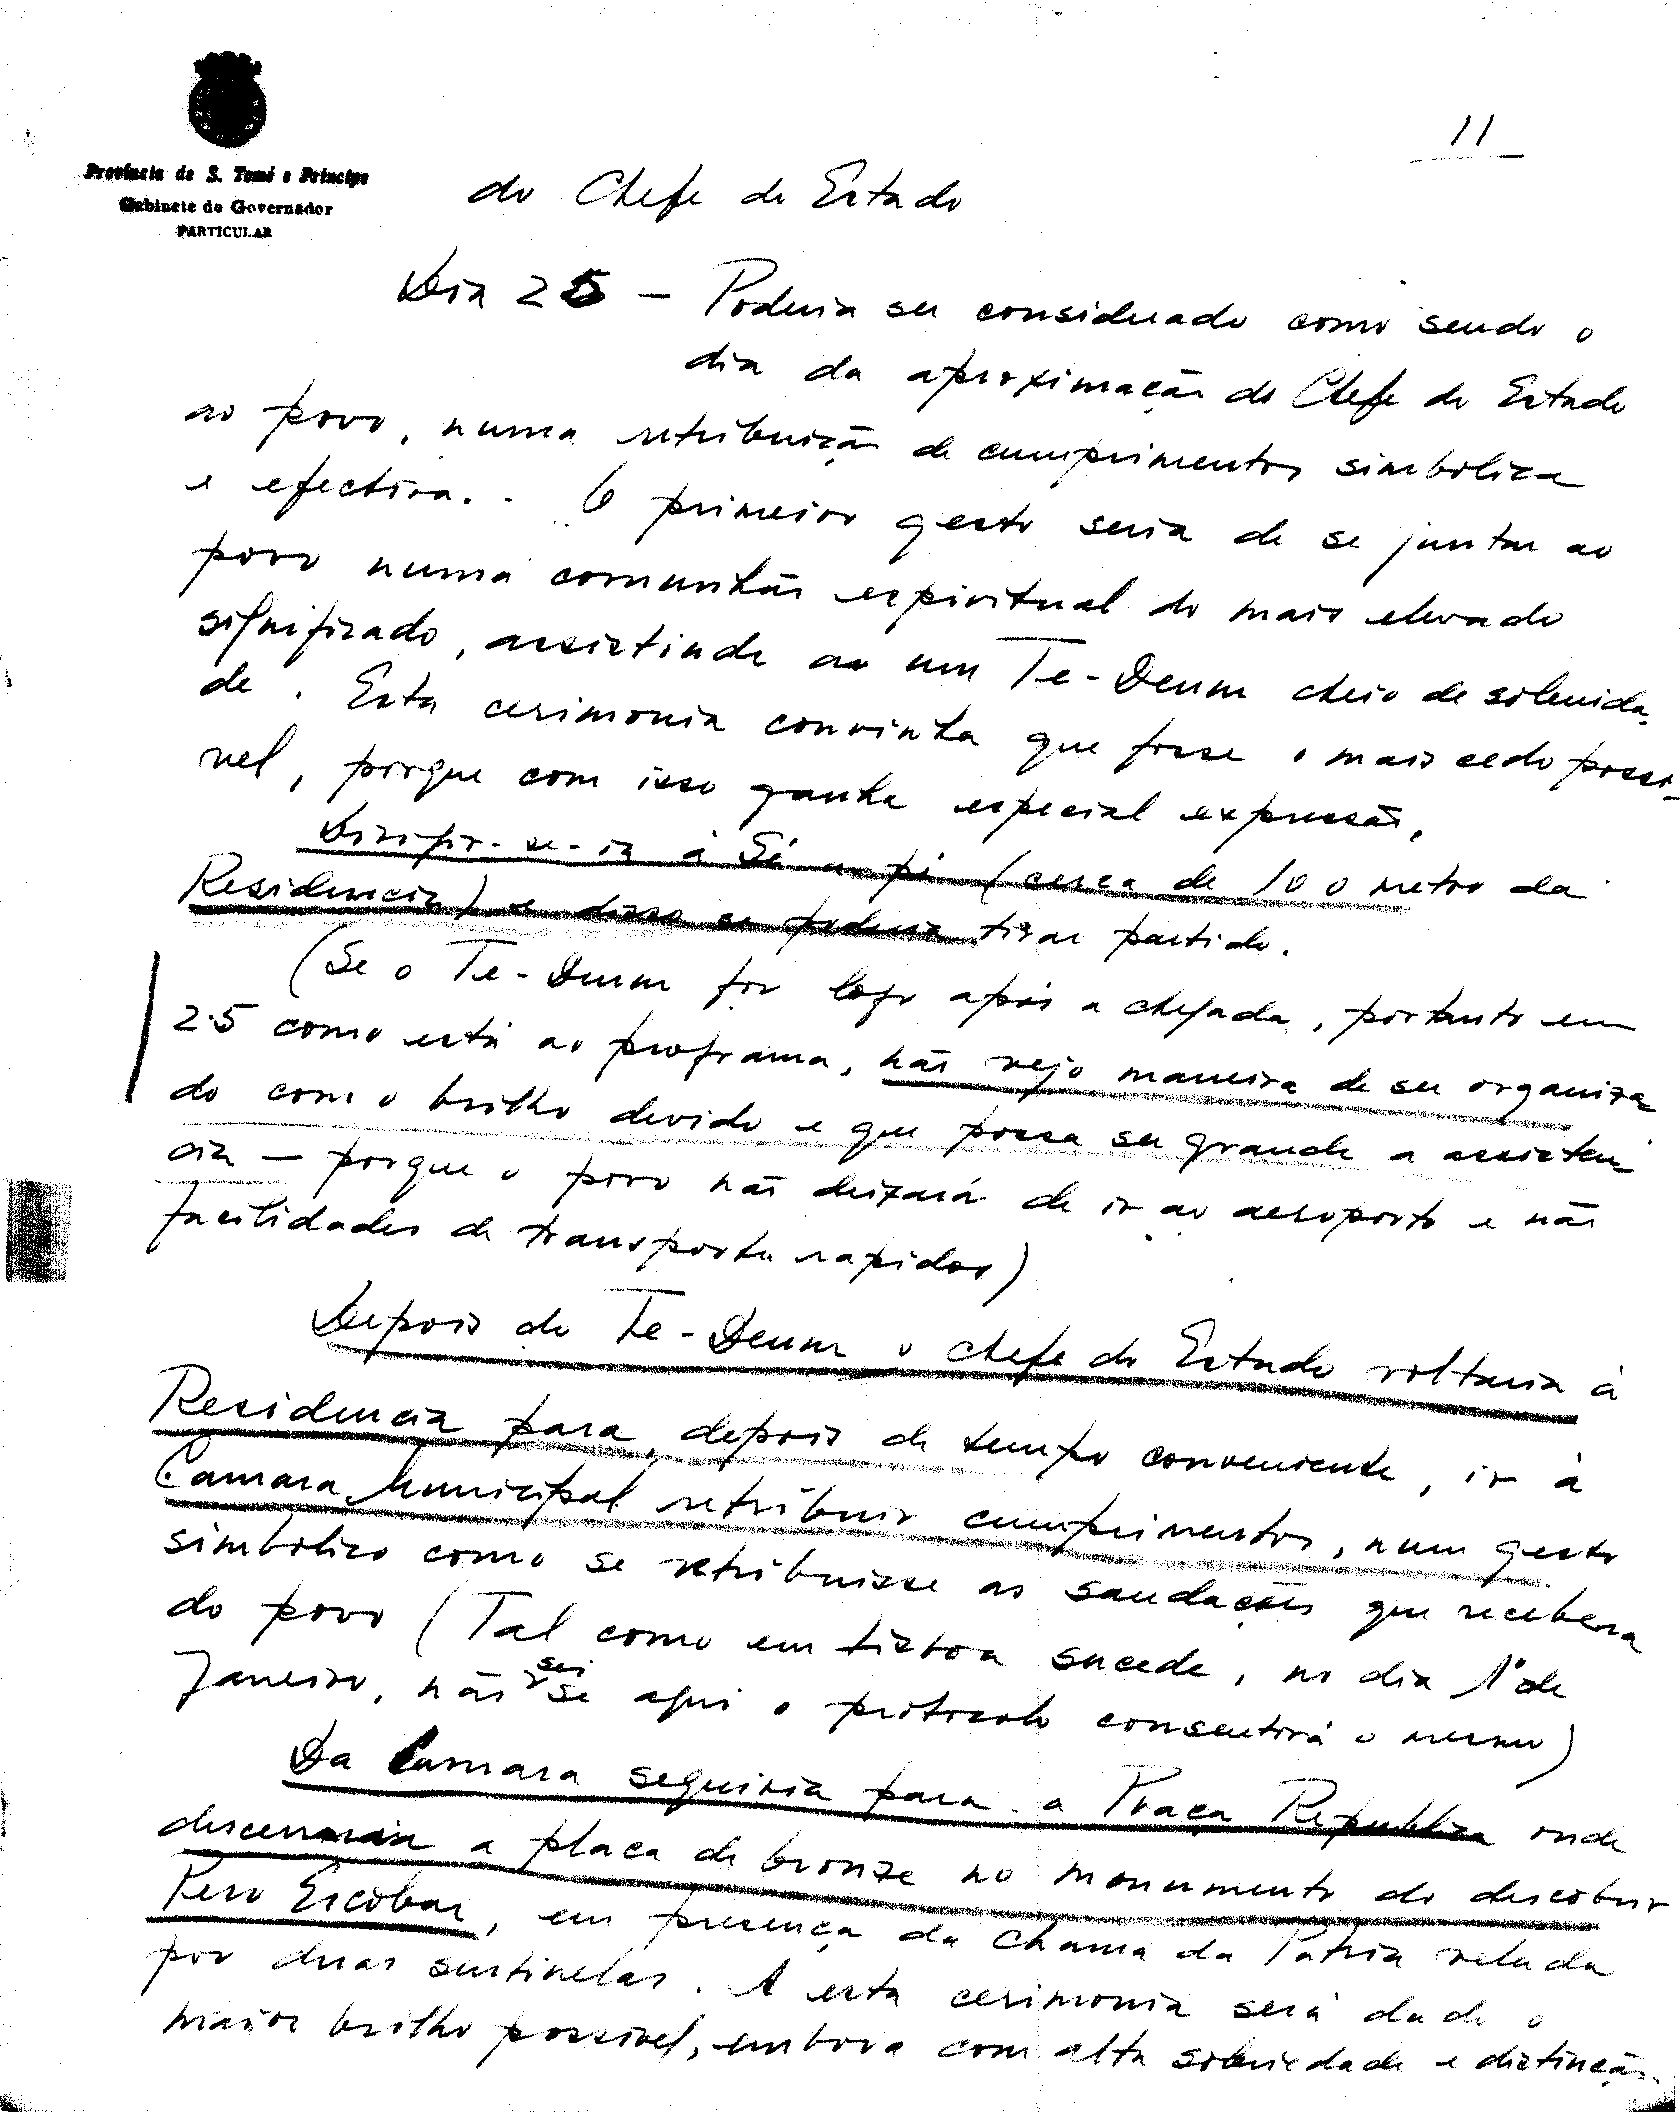 11
Província de S. Tomé e Príncipe
Gabinete do Governador
PARTICULAR
do Chefe de Estado
Dia 25 — Poderia ser considerado como sendo o
dia da aproximação do Chefe de Estado
ao povo, numa retribuição de cumprimentos simbolica
e efectiva. O primeiro gesto seria de se juntar ao
povo numa comunhão espiritual do mais elevado
significado, assistindo ao um Te-Deum cheio de solenida
de. Esta cerimonia convinha que fosse o mais cedo possi-
vel, porque com isso ganha especial expressão.
Dirigir-se-ia à Sé a pé (cerca de 100 metro da
Residencia) e disso se poderia tirar partido.
(Se o Te-Deum for logo após a chegada, portanto em
25 como está ao programa, não vejo maneira de ser organiza
do com o brilho devido e que possa ser grande a assisten
cia — porque o povo não deixará de ir ao aeroporto e não
facilidades de transporte rapidos)
Depois do Te-Deum o chefe do Estado voltaria à
Residencia para, depois de tempo conveniente, ir à
Camara Municipal retribuir cumprimentos, num gesto
simbolico como se retribuisse as saudações que recebera
do povo (Tal como em Lisboa sucede, no dia 1º de
Janeiro, não sei se aqui o protocolo consentirá o mesmo)
Da Camara seguiria para a Praça Republica onde
descerraria a placa de bronze no monumento do descobrir
Pero Escobar, em presença da chama da Patria velada
por duas sentinelas. A esta cerimonia será dado o
maior brilho possivel, embora com alta sobriedade e distinção.